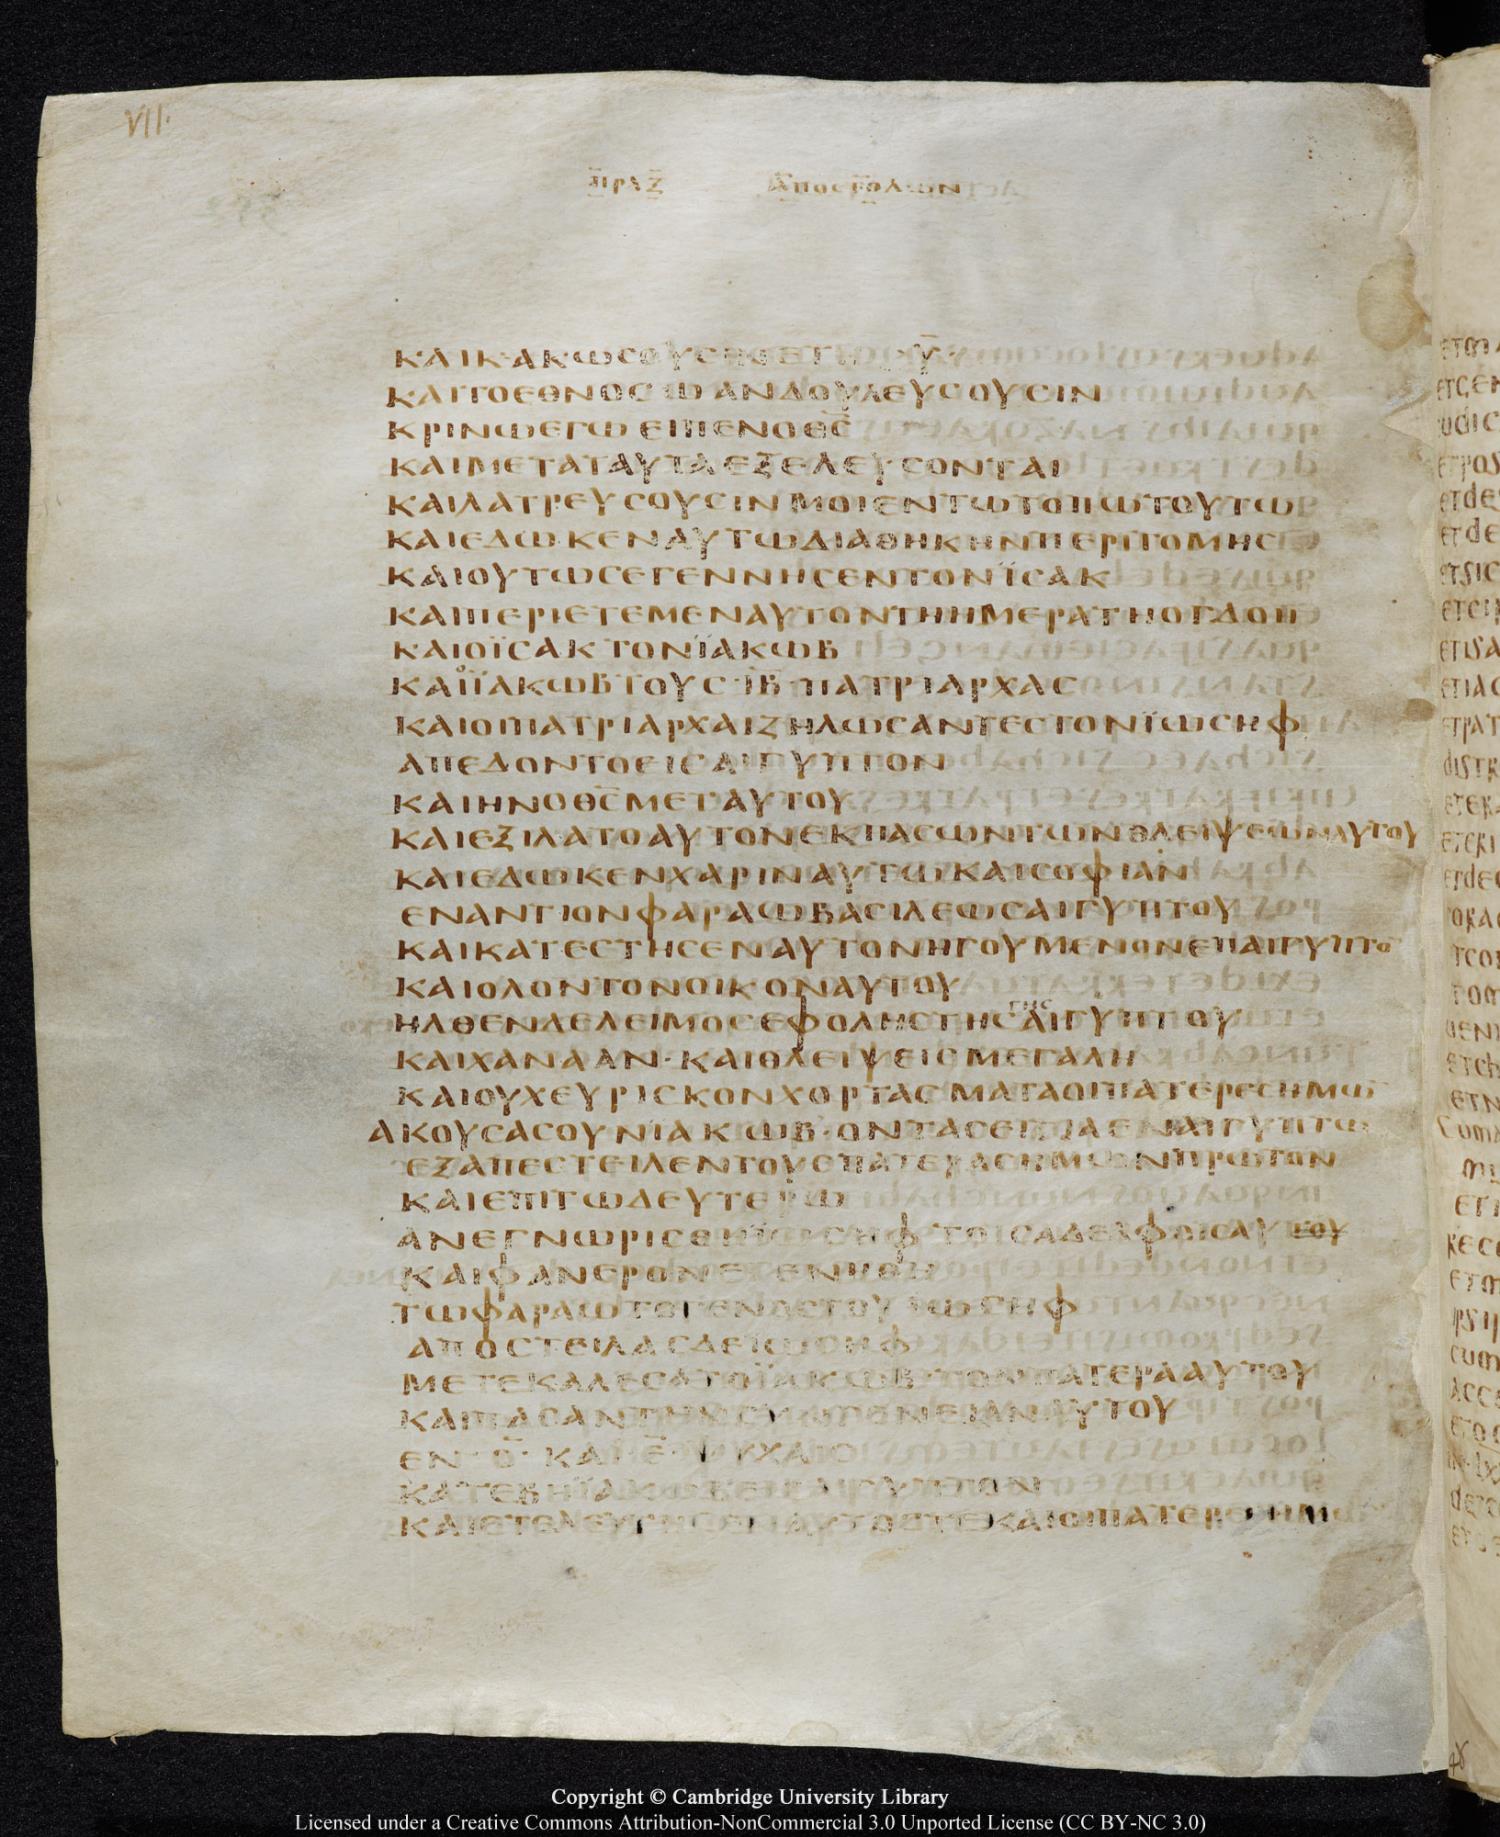 VII.
ΠΡΑΞ ΑΠΟΣΤΟΛΩΝ
ΚΑΙ ΚΑΚΩСΟΥСΙΝ ΕΤΗ Ῡ
ΚΑΙ ΤΟ ΕΘΝΟС Ω ΑΝ ΔΟΥΛΕΥСΟΥСΙΝ
ΚΡΙΝΩ ΕΓΩ ΕΙΠΕΝ Ο ΘС
ΚΑΙ ΜΕΤΑ ΤΑΥΤΑ ΕΞΕΛΕΥСΟΝΤΑΙ
ΚΑΙ ΛΑΤΡΕΥСΟΥСΙΝ ΜΟΙ ΕΝ ΤΩ ΤΟΠΩ ΤΟΥΤΩ
ΚΑΙ ΕΔΩΚΕΝ ΑΥΤΩ ΔΙΑΘΗΚΗΝ ΠΕΡΙΤΟΜΗС
ΚΑΙ ΟΥΤΩС ΕΓΕΝΝΗСΕΝ ΤΟΝ ΪСΑΚ
ΚΑΙ ΠΕΡΙΕΤΕΜΕΝ ΑΥΤΟΝ ΤΗ ΗΜΕΡΑ ΤΗ ΟΓΔΟΗ
ΚΑΙ Ο ΪСΑΚ ΤΟΝ ΪΑΚΩΒ
ΚΑΙ Ο ΪΑΚΩΒ ΤΟΥС ΙΒ ΠΑΤΡΙΑΡΧΑС
ΚΑΙ Ο ΠΑΤΡΙΑΡΧΑΙ ΖΗΛΩСΑΝΤΕС ΤΟΝ ΪΩСΗΦ
ΑΠΕΔΟΝΤΟ ΕΙС ΑΙΓΥΠΤΟΝ
ΚΑΙ ΗΝ Ο ΘС ΜΕΤ ΑΥΤΟΥ
ΚΑΙ ΕΞΙΛΑΤΟ ΑΥΤΟΝ ΕΚ ΠΑСΩΝ ΤΩΝ ΘΛΕΙΨΕΩΝ ΑΥΤΟΥ
ΚΑΙ ΕΔΩΚΕΝ ΧΑΡΙΝ ΑΥΤΩ ΚΑΙ СΟΦΙΑΝ
ΕΝΑΝΤΙΟΝ ΦΑΡΑΩ ΒΑСΙΛΕΩС ΑΙΓΥΠΤΟΥ
ΚΑΙ ΚΑΤΕСΤΗСΕΝ ΑΥΤΟΝ ΗΓΟΥΜΕΝΟΝ ΕΠ ΑΙΓΥΠΤΟ
ΚΑΙ ΟΛΟΝ ΤΟΝ ΟΙΚΟΝ ΑΥΤΟΥ
ΗΛΘΕΝ ΔΕ ΛΕΙΜΟС ΕΦ ΟΛΗС ΤΗС ΓΗС ΑΙΓΥΠΤΟΥ
ΚΑΙ ΧΑΝΑΑΝ · ΚΑΙ ΘΛΕΙΨΕΙС ΜΕΓΑΛΗ
ΚΑΙ ΟΥΧ ΕΥΡΙСΚΟΝ ΧΟΡΤΑСΜΑΤΑ ΟΙ ΠΑΤΕΡΕС ΗΜΩ
ΑΚΟΥСΑС ΟΥΝ ΪΑΚΩΒ · ΟΝΤΑ СΕΙΤΙΑ ΕΝ ΑΙΓΥΠΤΩ
ΕΞΑΠΕСΤΕΙΛΕΝ ΤΟΥС ΠΑΤΕΡΑС ΗΜΩΝ ΠΡΩΤΟΝ
ΚΑΙ ΕΠΙ ΤΩ ΔΕΥΤΕΡΩ
ΑΝΕΓΝΩΡΙСΘΗ ΪΩСΗΦ ΤΟΙС ΑΔΕΛΦΟΙС ΑΥΤΟΥ
ΚΑΙ ΦΑΝΕΡΟΝ ΕΓΕΝΗΘΗ
ΤΩ ΦΑΡΑΩ ΤΟ ΓΕΝΟС ΤΟΥ ΪΩСΗΦ
ΑΠΟСΤΕΙΛΑС ΔΕ ΪΩСΗΦ
ΜΕΤΕΚΑΛΕСΑΤΟ ΪΑΚΩΒ ΤΟΝ ΠΑΤΕΡΑ ΑΥΤΟΥ
ΚΑΙ ΠΑСΑΝ ΤΗΝ СΥΝΓΕΝΕΙΑΝ ΑΥΤΟΥ
ΕΝ Ο̄ · ΚΑΙ Ε̄ · ΨΥΧΑΙС
ΚΑΤΕΒΗ ΪΑΚΩΒ ΕΙС ΑΙΓΥΠΤΟΝ
ΚΑΙ ΕΤΕΛΕΥΤΗСΕΝ ΑΥΤΟС ΤΕ ΚΑΙ ΟΙ ΠΑΤΕΡΕС ΗΜΩ
Copyright © Cambridge University Library
Licensed under a Creative Commons Attribution-NonCommercial 3.0 Unported License (CC BY-NC 3.0)